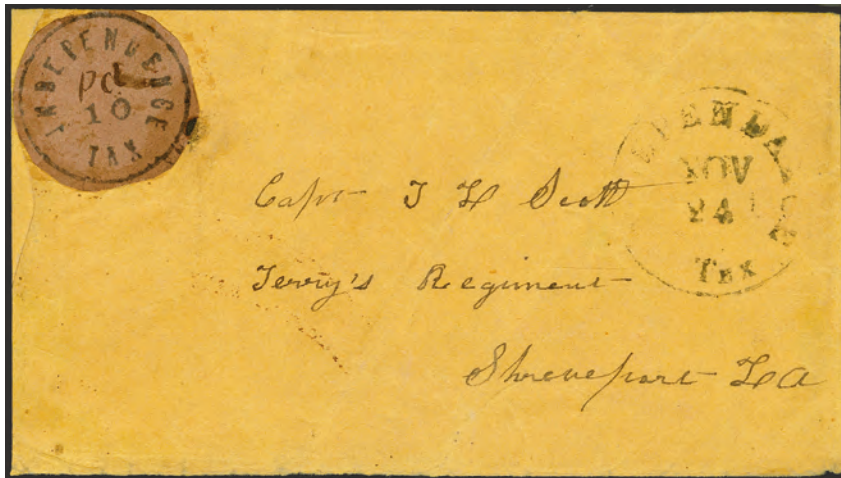 INDEPENDENCE TEX
Pd
10
NOV
24
TEX
Capt T H Scott
Terry's Regiment
Shreveport LA